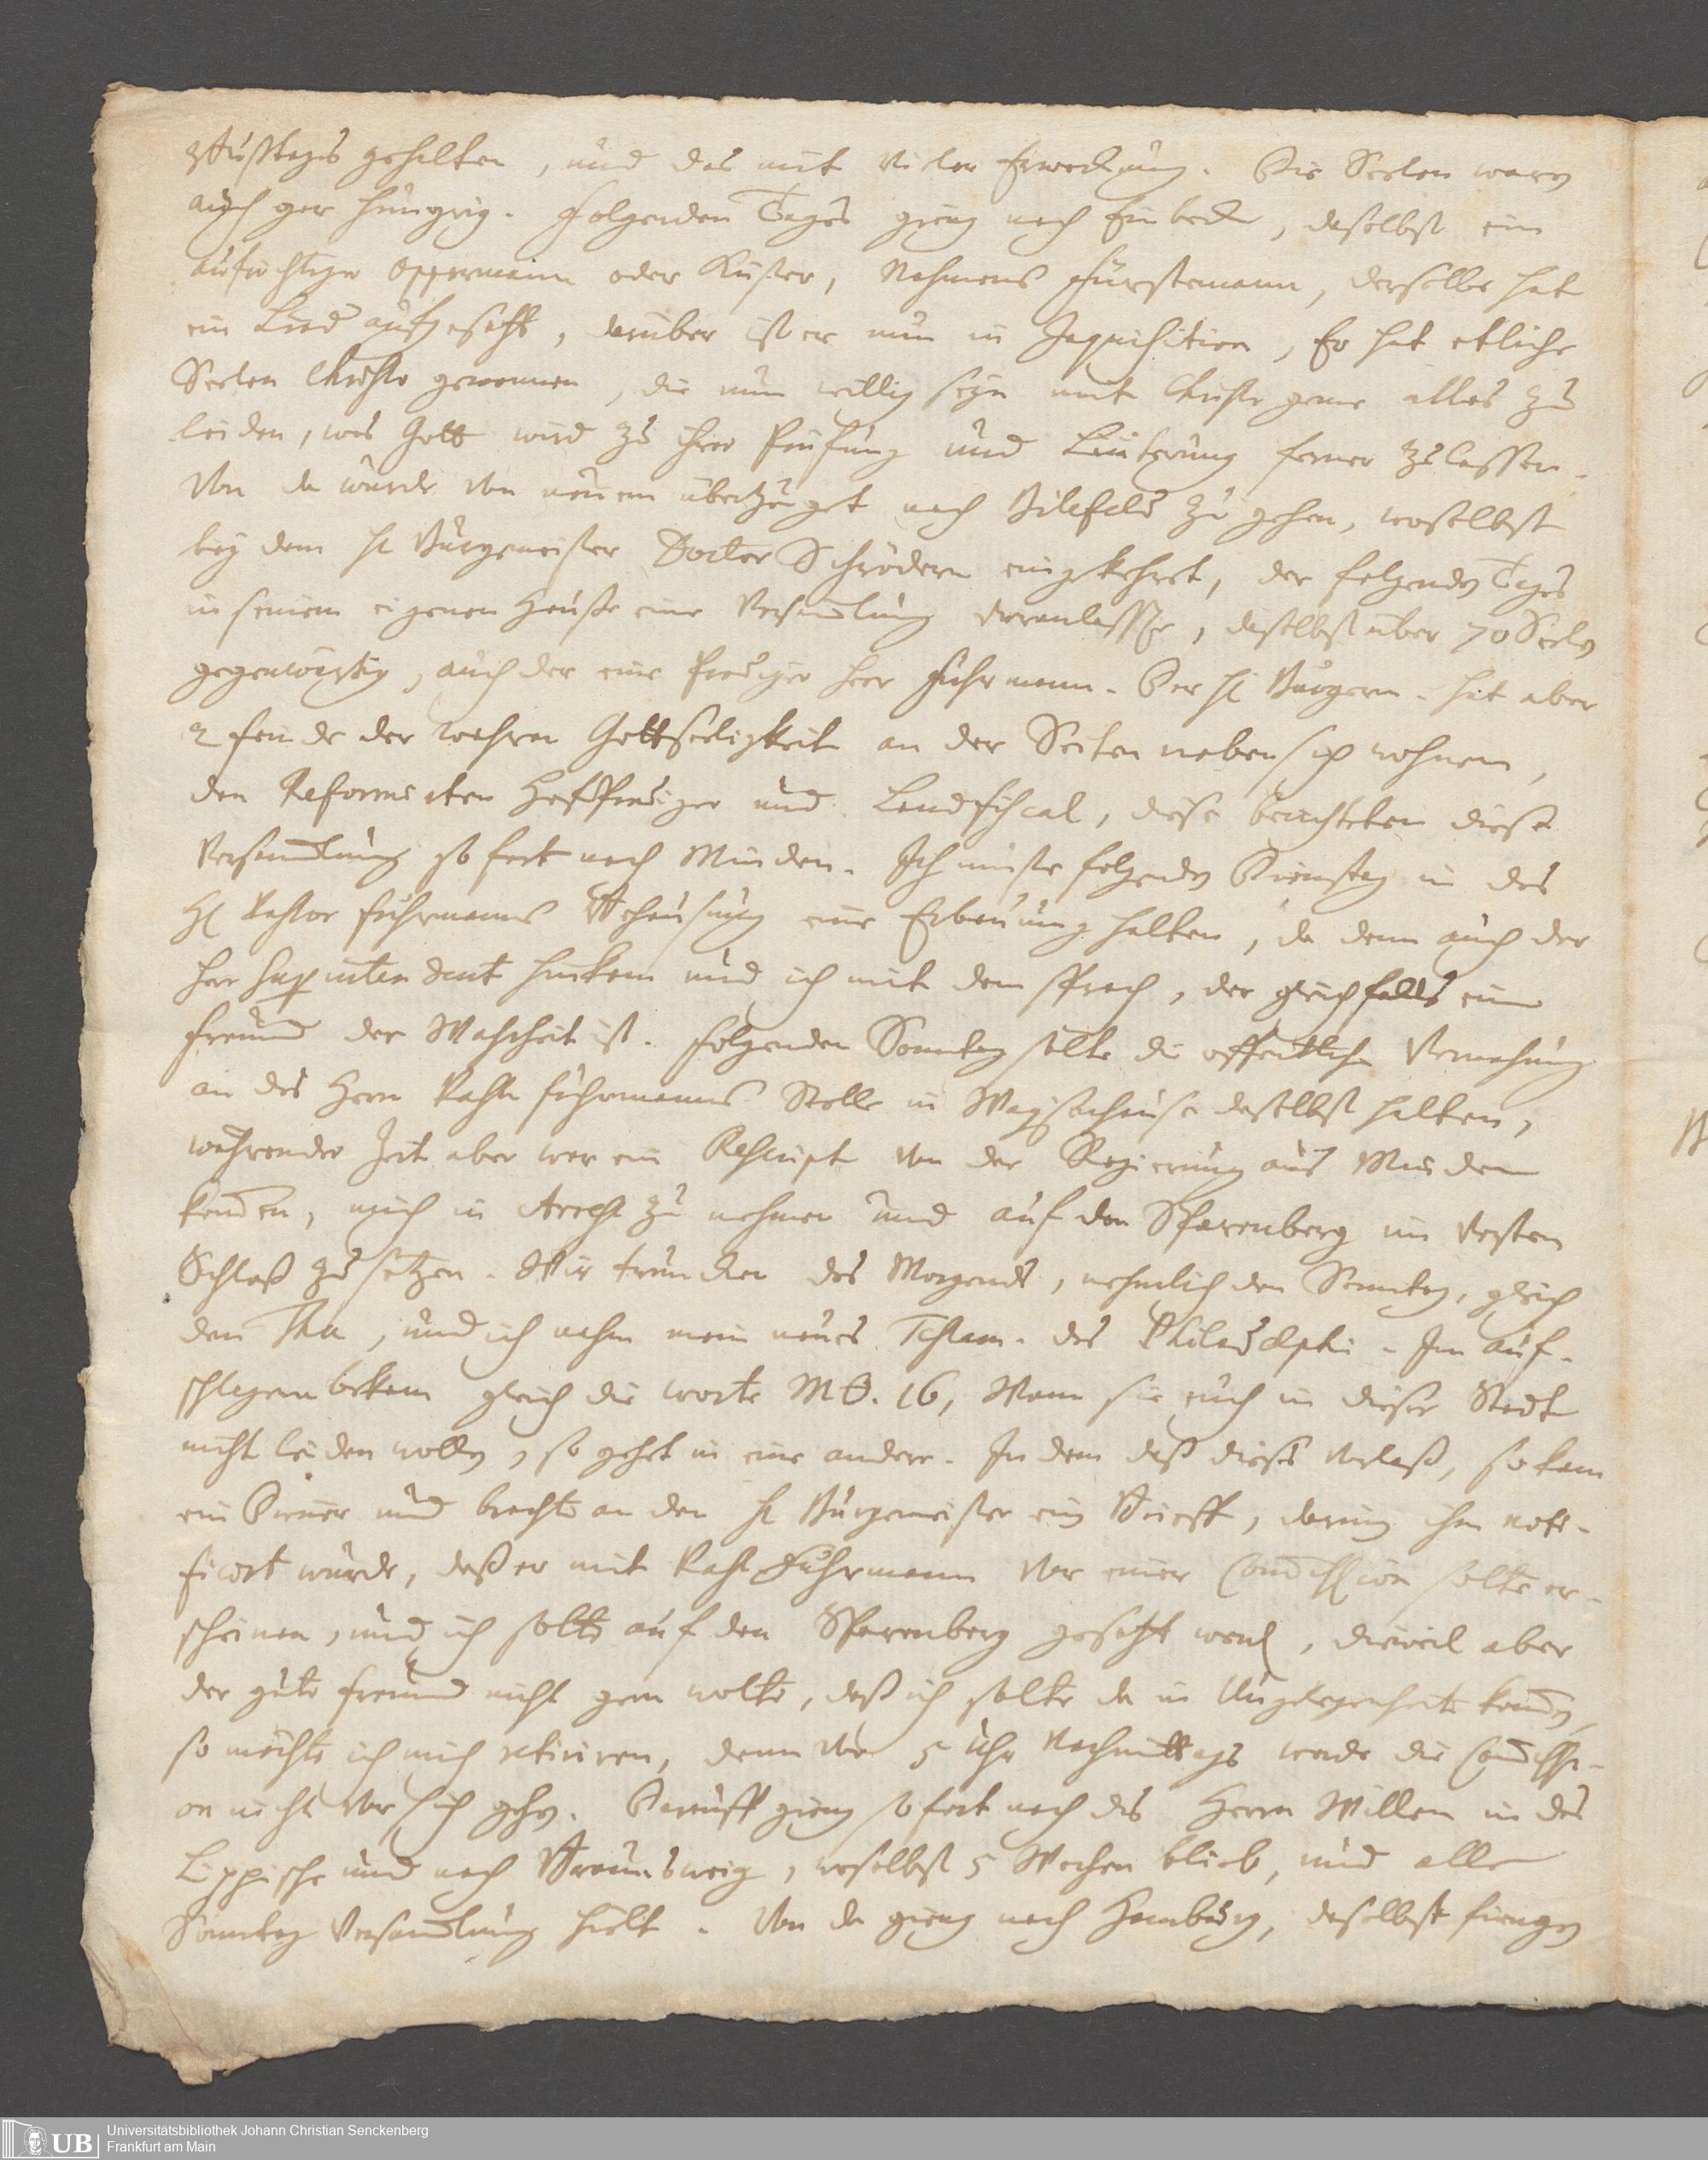 gehalten, und das mit vieler Erweckung. Die Seelen waren
auch gar hungrig. Folgenden Tages gieng nach Einbeck, daselbst ein
aufrichtiger Oppermann oder Küster, Nahmens Fürstemann, derselbe hat
ein Lied aufgesetzt, darüber ist er nun in Inquisition, Er hat etliche
Seelen Christo gewonnen, die nun willig seyn mit Christo gerne alles zu
leiden, was Gott wird zu ihrer Prüfung und Läuterung ferner zulassen.
Von da wurde von neuem überzeuget nach Bilefeld zu gehen, woselbst
bey dem H Bürgemeister Docter Schrödern eingekehret, der folgenden Tages
in seinem eigenen Hause eine Versamlung veranlaste, daselbst über 70 Seelen
gegenwärtig, auch der eine Prediger Herr Fuhrmann. Der H Bürgem. hat aber
2 feinde der wahren Gottseeligkeit an der Seiten neben sich wohnen,
den Reformirten Hoffprediger und Landfiscal, diese berichteten diese
Versamlung so fort nach Minden. Ich muste folgenden Dienstag in des
H Pastor Fuhrmanns Behausung eine Erbauung halten, da denn auch der
Herr Supintendent hinkam und ich mit dem sprach, der gleichfalls ein
freund der Wahrheit ist. Folgenden Sonntag solte die offentliche Vermahnung
an des Herrn Past. Fuhrmanns Stelle in Waysenhause daselbst halten,
während der Zeit aber war ein Rescript von der Regierung aus Minden
kommen, mich in Arrest zu nehmen und auf den Sparenberg im Vesten
Schloß zu setzen. Wir truncken des Morgends, nehmlich den Sonntag, gleich
den Thee, und ich nahm mein neues Testam. des Philadelphi. Im auf-
schlagen bekam gleich die worte Mt. 16, Wann sie euch in dieser Stadt
nicht leiden wollen, so gehet in eine andere. In dem daß dieses verlaß, so kam
ein Diener und brachte an den H Bürgemeister ein Brieff, darinn ihm noti-
ficirt wurde, daß er mit Past. Fuhrmann vor einer Commission solte er-
scheinen, und ich solte auf den Sparenberg gesetzt werd, dieweil aber
der gute freund nicht gern wolte, daß ich solte da in Ungelegenheit kommen,
so möchte ich mich retiriren, denn vor 5 Uhr Nachmittags werde die Commissi-
on nicht vor sich gehen. Darauff gieng so fort nach des Herrn Willen in das
Lippische und nach Braunsweig, woselbst 5 Wochen blieb, und alle
Sonntag Versamlung hielt. Von da gieng nach Hamburg, daselbst fiengen
Universitätsbibliothek Johann Christian Senckenberg
Frankfurt am Main
UB